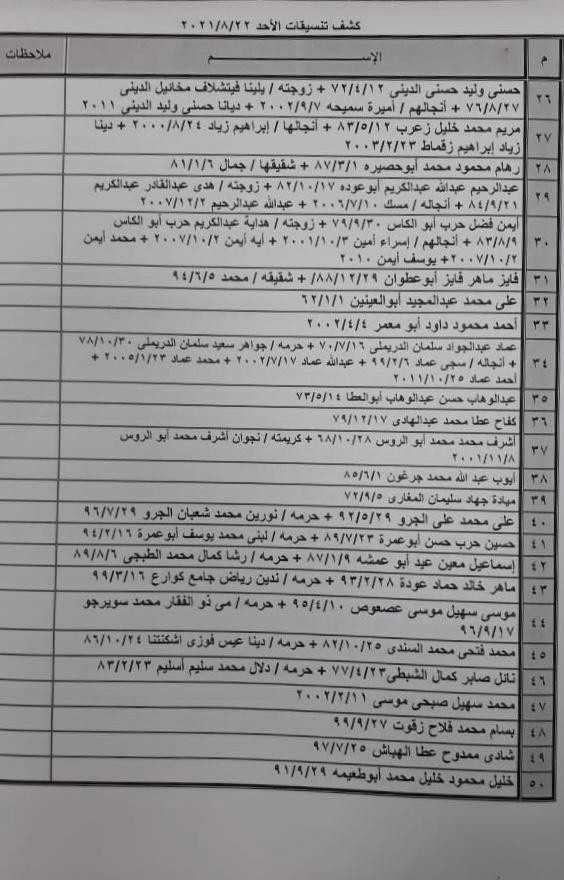 كشف تنسيقات الأحد ٢٠٢١/٨/٢٢
م الإســـم ملاحظات
٢٦ حسنى وليد حسنى الدينى ٧٢/٤/١٢ + زوجته / يلينا فيتشلاف مخانيل الدينى
٧٦/٨/٢٧ + أنجالهم / أميرة سميحه ٢٠٠٢/٩/٧ + ديانا حسنى وليد الدينى ٢٠١١
٢٧ مريم محمد خليل زعرب ٨٣/٥/١٢ + أنجالها / إبراهيم زياد ٢٠٠٠/٨/٢٤ + دينا
زياد إبراهيم زقماط ٢٠٠٣/٢/٢٣
٢٨ رهام محمود محمد أبوحصيره ٨٧/٣/١ + شقيقها / جمال ٨١/١/٦
٢٩ عبدالرحيم عبدالله عبدالكريم أبوعوده ٨٢/١٠/١٧ + زوجته / هدى عبدالقادر عبدالكريم
٨٤/٩/٢١ + أنجاله / مسك ٢٠٠٦/٧/١٠ + عبدالله عبدالرحيم ٢٠٠٧/١٢/٢
٣٠ أيمن فضل حرب أبو الكاس ٧٩/٩/٣٠ + زوجته / هداية عبدالكريم حرب أبو الكاس
٨٣/٨/٩ + أنجالهم / إسراء أمين ٢٠٠١/١٠/٣ + أيه أيمن ٢٠٠٧/١٠/٢ + محمد أيمن
٢٠٠٧/١٠/٢+ يوسف أيمن ٢٠١٠
٣١ فايز ماهر فايز أبوعطوان ٨٨/١٢/٢٩/+ شقيقه / محمد ٩٤/٦/٥
٣٢ على محمد عبدالمجيد أبوالعينين ٦٢/١/١
٣٣ أحمد محمود داود أبو معمر ٢٠٠٢/٤/٤
٣٤ عماد عبدالجواد سلمان الدريملى ٧٠/٧/١٦ + حرمه / جواهر سعيد سلمان الدريملى ٧٨/١٠/٣٠
+ أنجاله / سجى عماد ٩٩/٢/٦ + عبدالله عماد ٢٠٠٢/٧/١٧ + محمد عماد ٢٠٠٥/١/٢٣ +
أحمد عماد ٢٠١١/١٠/٢٥
٣٥ عبدالوهاب حسن عبدالوهاب أبوالعطا ٧٣/٥/١٤
٣٦ كفاح عطا محمد عبدالهادى ٧٩/١٢/١٧
٣٧ أشرف محمد محمد أبو الروس ٦٨/١٠/٢٨ + كريمته / نجوان أشرف محمد أبو الروس
٢٠٠١/١١/٨
٣٨ أيوب عبد الله محمد جرغون ٨٥/٦/١
٣٩ ميادة جهاد سليمان المغارى ٧٢/٩/٥
٤٠ على محمد على الجرو ٩٢/٥/٢٩ + حرمه / نورين محمد شعبان الجرو ٩٦/٧/٢٩
٤١ حسين حرب حسن أبوعمرة ٨٩/٧/٢٣ + حرمه / لبنى محمد يوسف أبوعمرة ٩٤/٢/١٦
٤٢ إسماعيل معين عيد أبو عمشه ٨٧/١/٩ + حرمه / رشا كمال محمد الطبجى ٨٩/٨/٦
٤٣ ماهر خالد حماد عودة ٩٣/٢/٢٨ + حرمه / ندين رياض جامع كوارع ٩٩/٣/١٦
٤٤ موسى سهيل موسى عصعوص ٩٥/٤/١٠ + حرمه / مى ذو الفقار محمد سويرجو
٩٦/٩/١٧
٤٥ محمد فتحى محمد السندى ٨٢/١٠/٢٥ + حرمه / دينا عيس فوزى اشكنتنا ٨٦/١٠/٢٤
٤٦ نائل صابر كمال الشبطى٧٧/٤/٢٣ + حرمه / دلال محمد سليم أسليم ٨٣/٢/٢٣
٤٧ محمد سهيل صبحى موسى ٢٠٠٢/٢/١١
٤٨ بسام محمد فلاح زقوت ٩٩/٩/٢٧
٤٩ شادى ممدوح عطا الهباش ٩٧/٧/٢٥
٥٠ خليل محمود خليل محمد أبوطعيمه ٩١/٩/٢٩